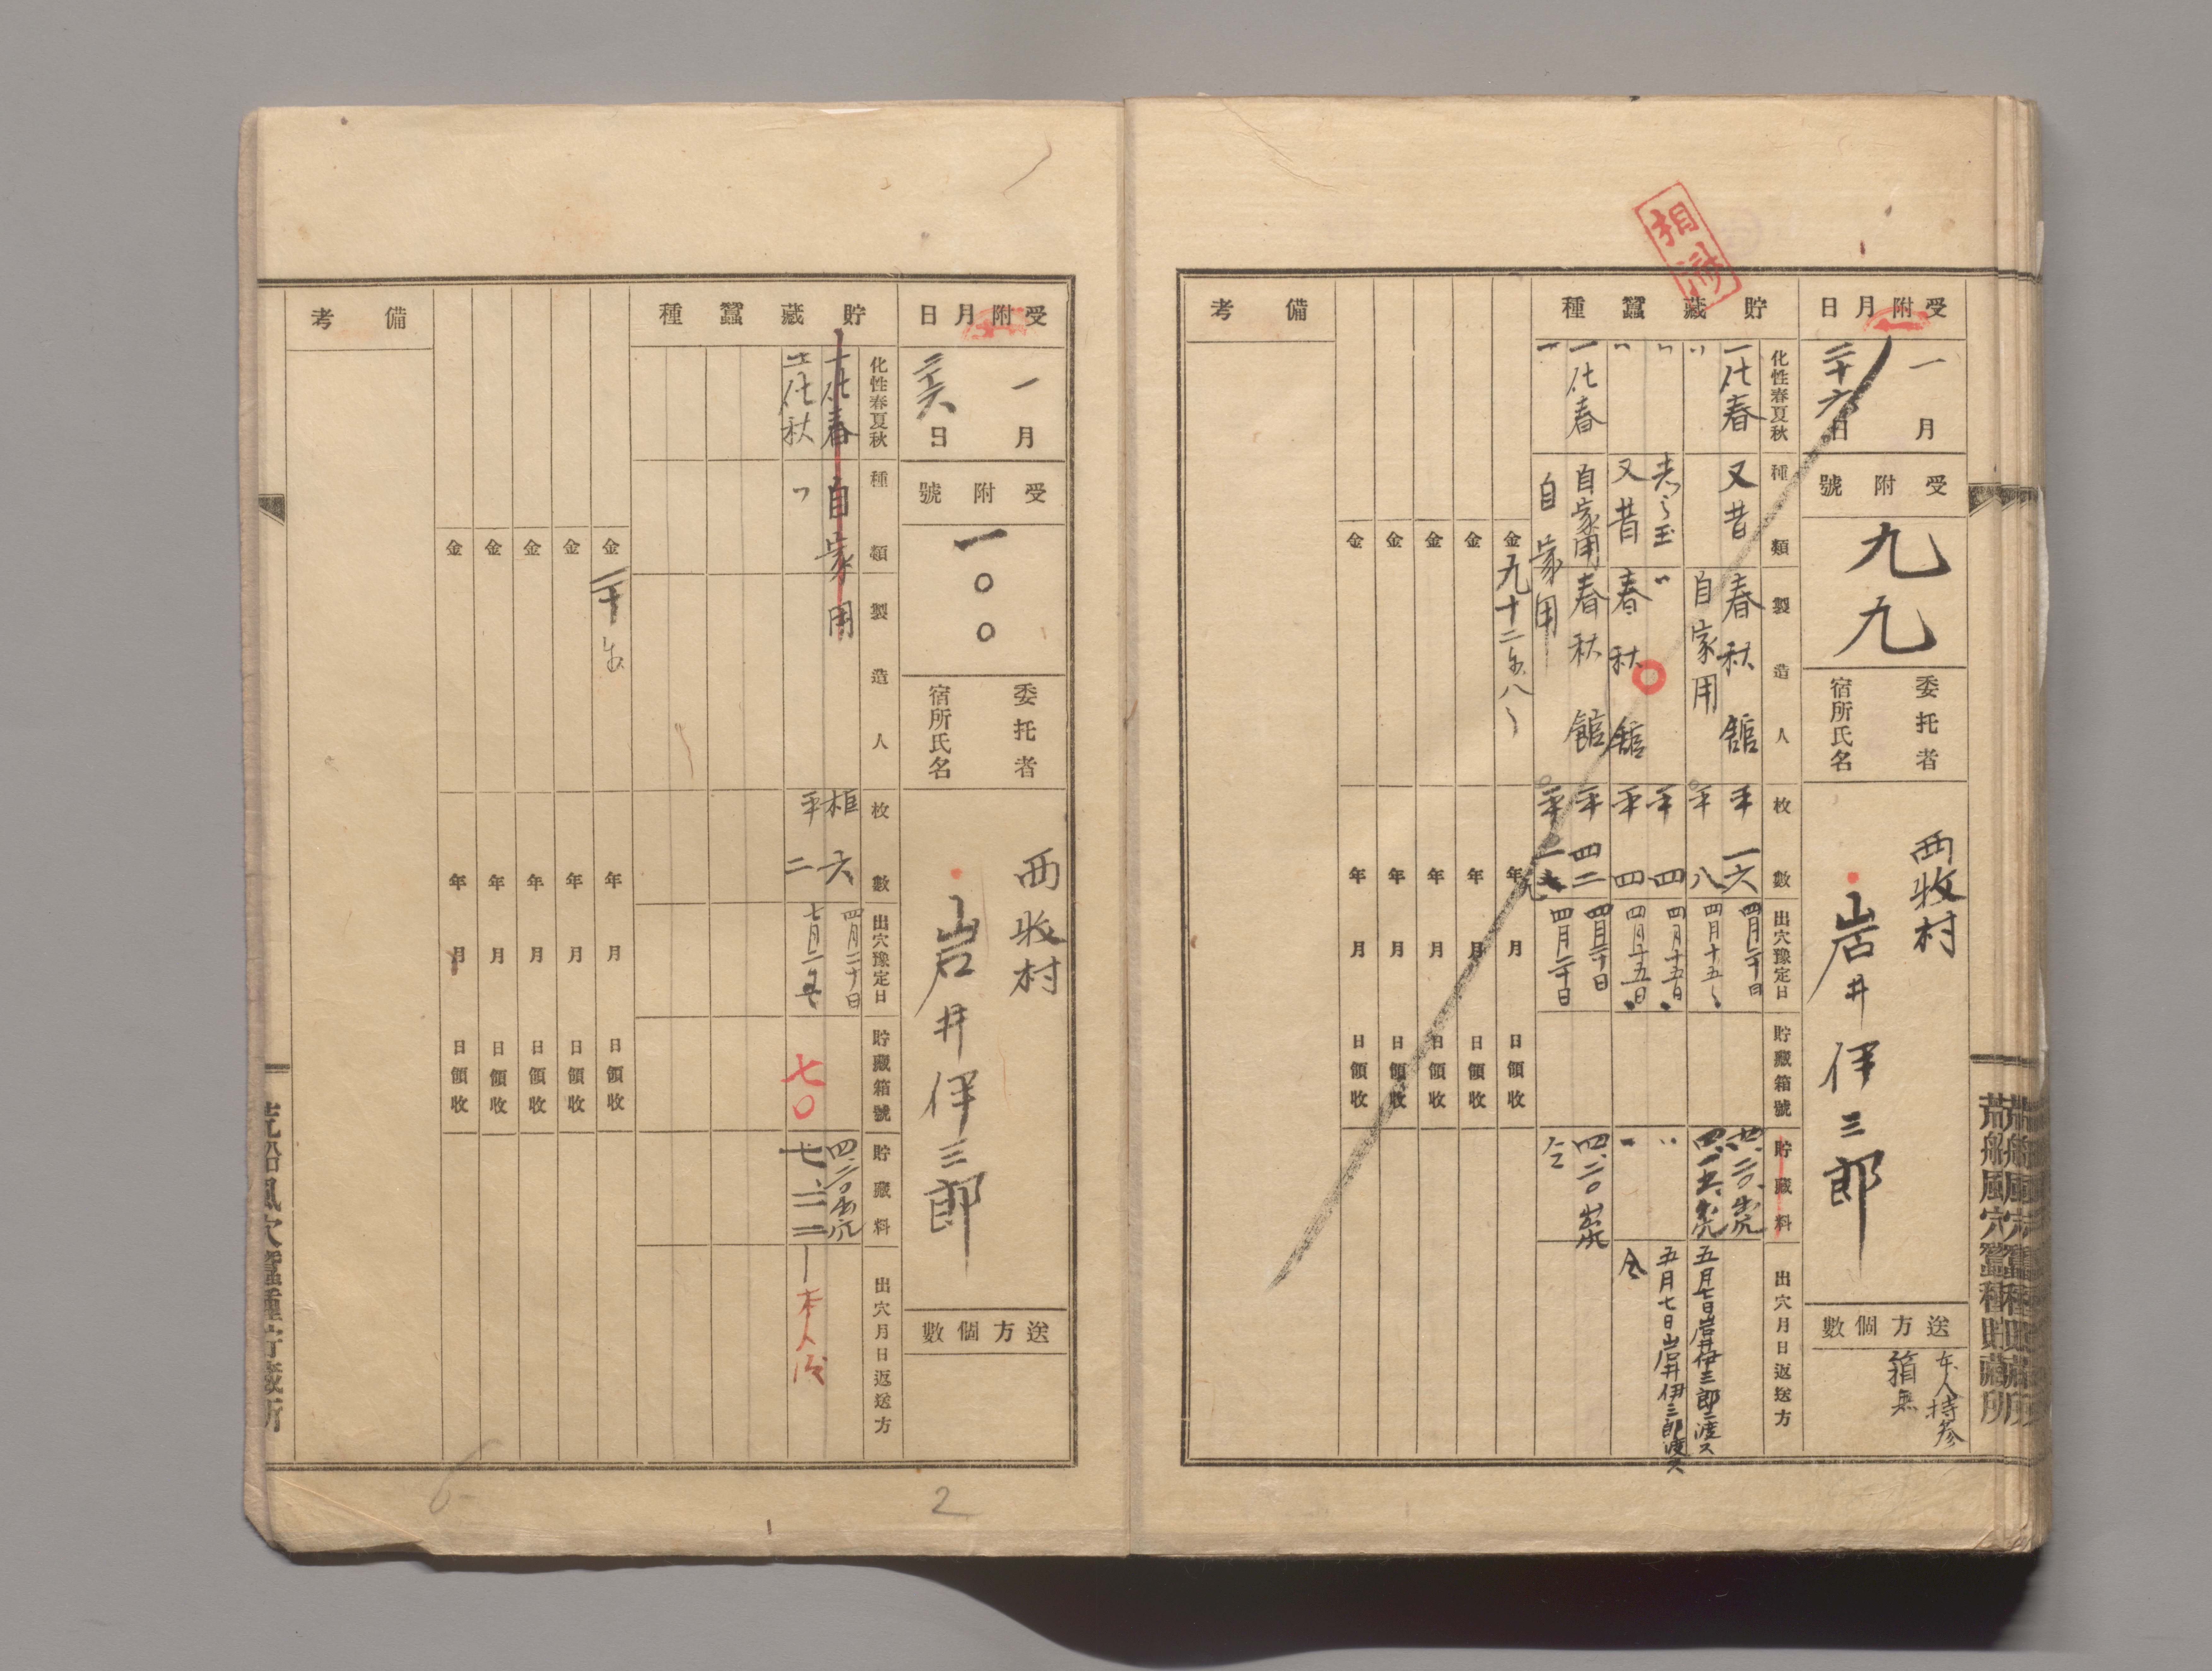 相済
受附月日
一月
二十六日
受附號
九九
委托者
宿所氏名
西牧村
岩井伊三郎
送方個數
本人持参
箱無
貯藏蠶種
化性春夏秋
種類
製造人
枚數
出穴豫定日
貯藏箱號
貯藏料
出穴月日返送方
一化春 又昔 春秋館 平 一六 四月二十日 四、二〇、出穴
〃 自家用 平 八 四月十五〃 四、一五、出穴 五月七日岩井伊三郎ニ渡ス
〃 〃 平 四 四月十五日 〃 五月七日岩井伊三郎渡ス
〃 又昔 春秋館 平 四 四月十五日 〃 仝
一化春 自家用 春秋館 平 四二 四月二十日 四、二〇出穴
〃 自家用 平 四月二十日 仝
金九十二 年 月 日領收
金 年 月 日領收
金 年 月 日領收
金 年 月 日領收
金 年 月 日領收
備考
荒船風穴蠶種貯藏所
受附月日
一月
二六日
受附號
一〇〇
委托者
宿所氏名
西牧村
岩井伊三郎
送方個數
貯藏蠶種
化性春夏秋
種類
製造人
枚數
出穴豫定日
貯藏箱號
貯藏料
出穴月日返送方
一化春 自家用 框 六 四月二十日 四、二〇出穴
二化秋 〃 平 二 七〇 本人渡
金二十 年 月 日領收
金 年 月 日領收
金 年 月 日領收
金 年 月 日領收
金 年 月 日領收
備考
荒船風穴蠶種貯藏所
2
6